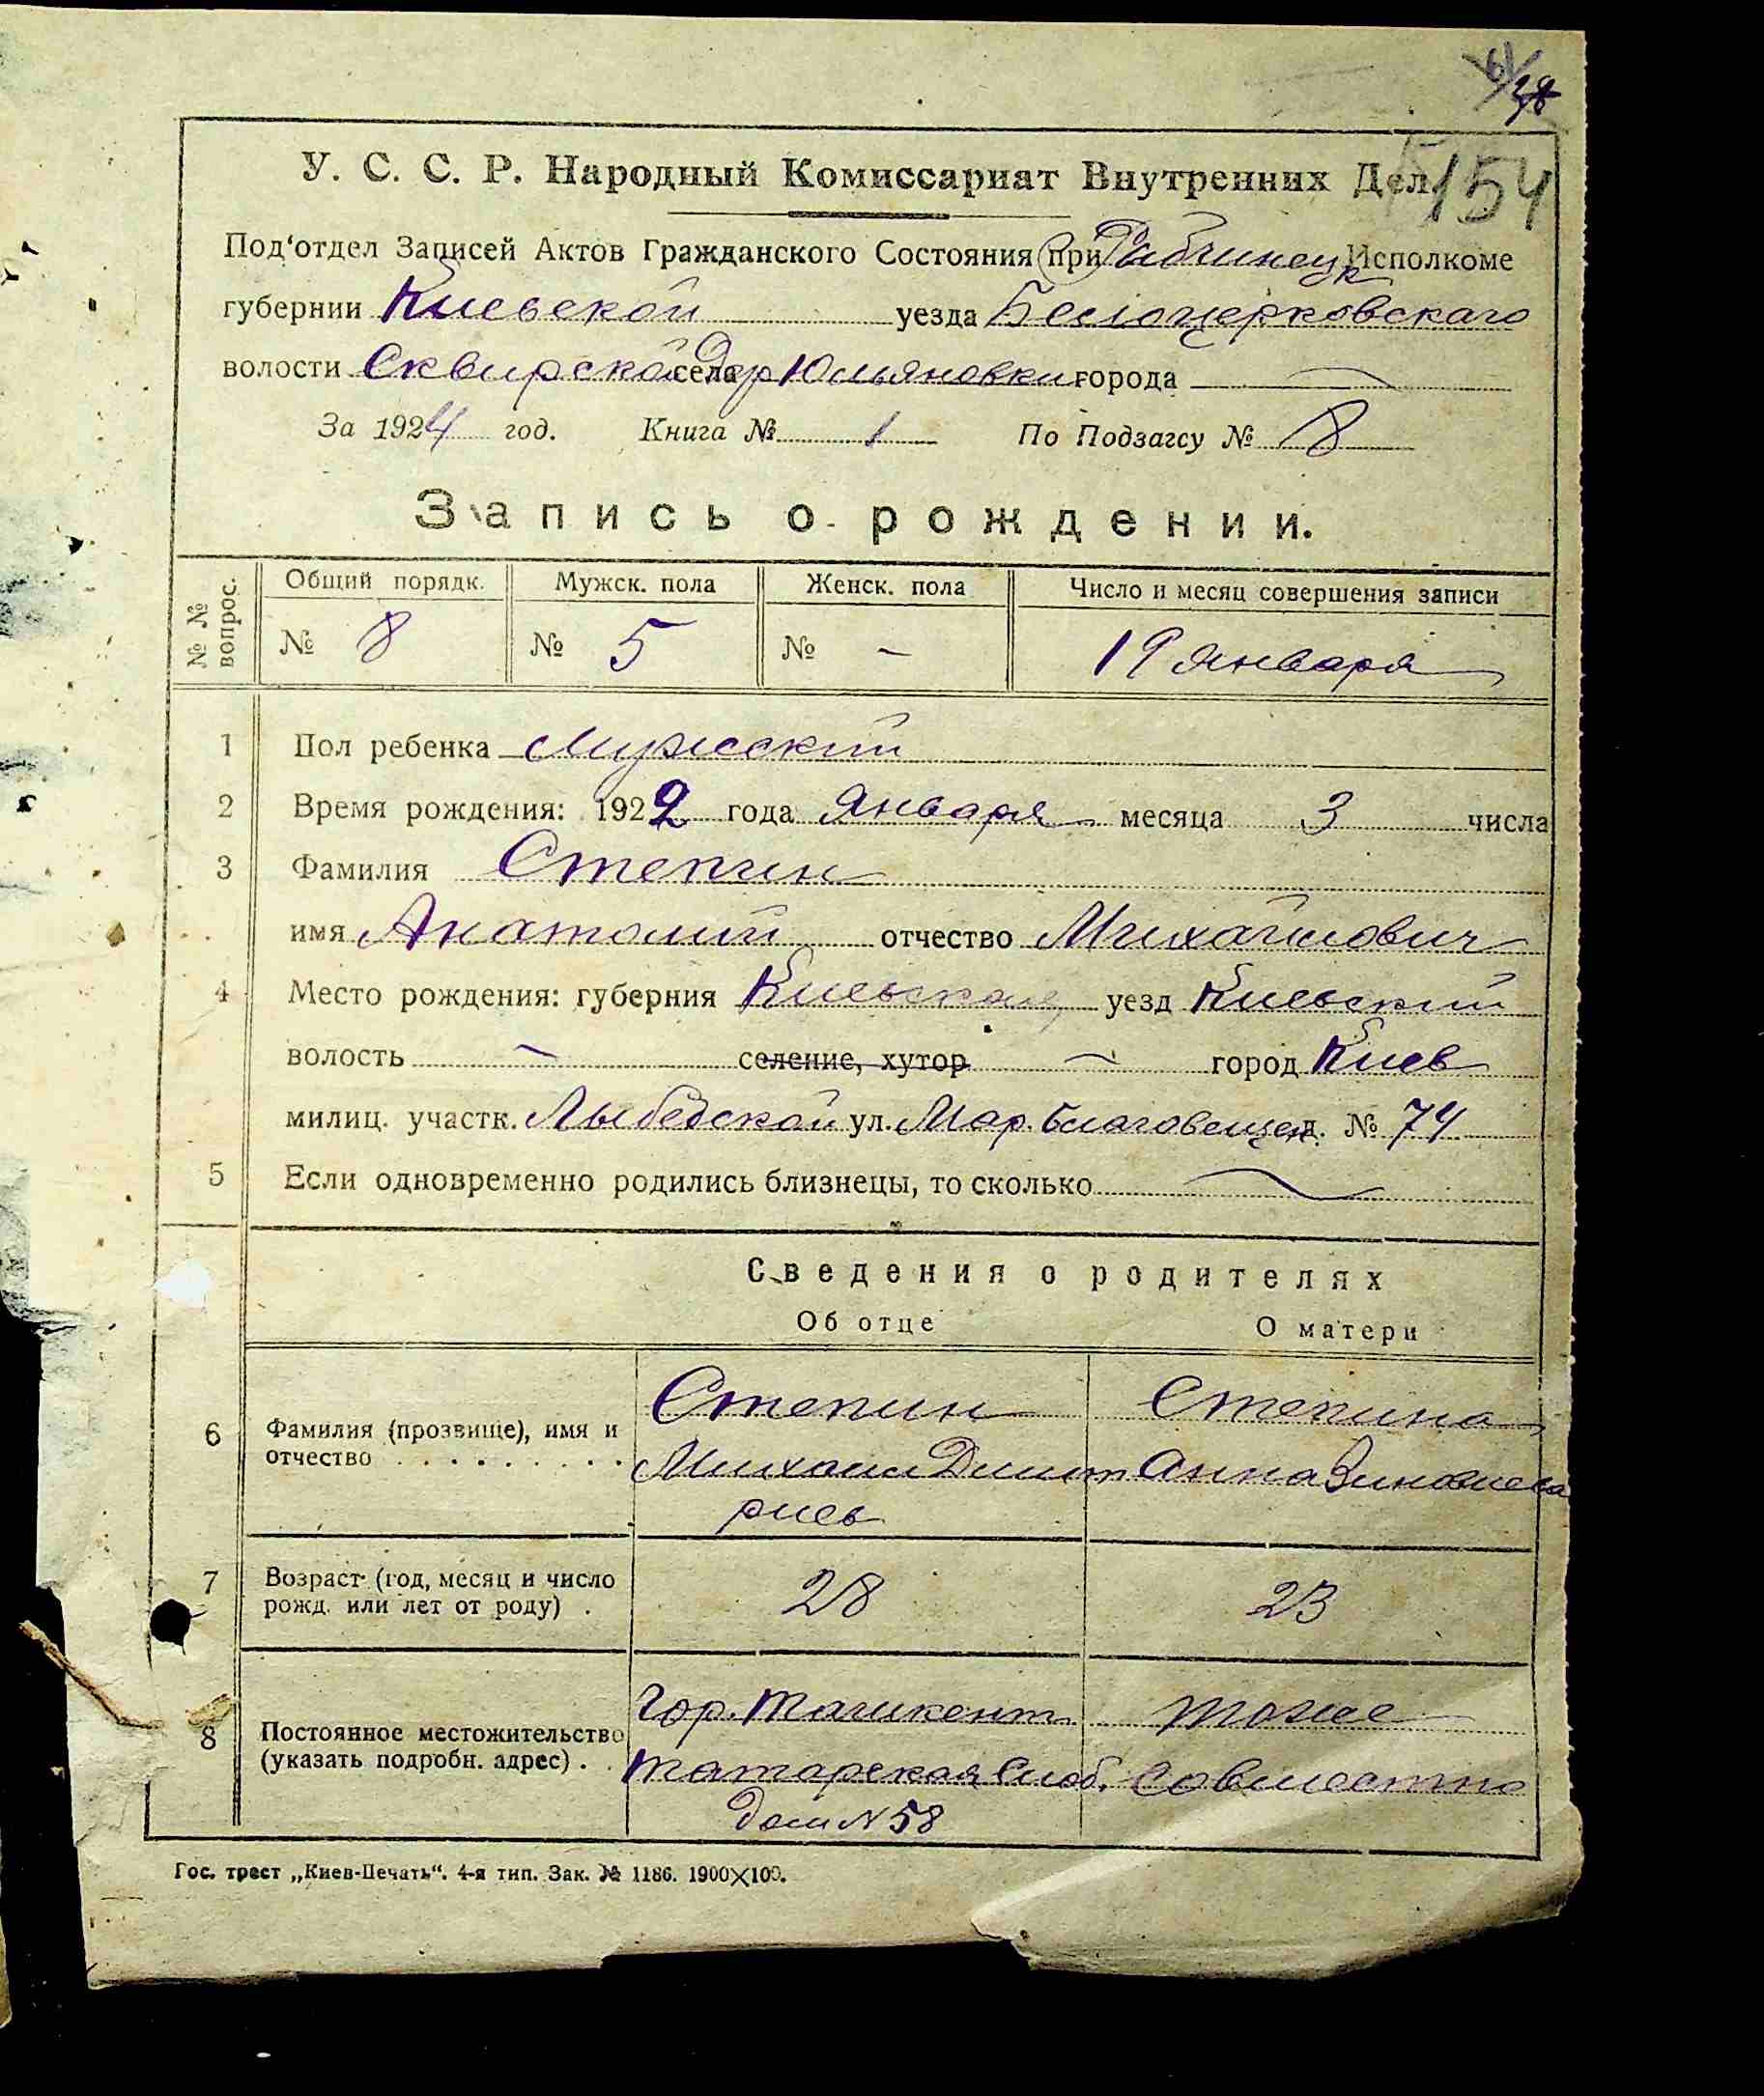 38
154
У. С. С. Р. Народный Комиссариат Внутренних Дел
Под'отдел Записей Актов Гражданского Состояния при Исполкоме
губернии Киевской уезда Белоцерковскаго
волости Сквирской села Дер Юльяновки города —
За 1924 год. Книга № 1 По Подзагсу № 8
Запись о рождении.
№ № вопрос. Общий порядк. Мужск. пола Женск. пола Число и месяц совершения записи
№ 8 № 5 № – 19 января
1 Пол ребенка мужеский
2 Время рождения: 1922 года Января месяца 3 числа
3 Фамилия Степин
имя Анатолий отчество Михайлович
4 Место рождения: губерния Киевская уезд Киевский
волость — селение, хутор — город Киев
милиц. участк. Лыбедской ул. Мар. Благовещен д. № 74
5 Если одновременно родились близнецы, то сколько —
Сведения о родителях
Об отце О матери
6 Фамилия (прозвище), имя и отчество Степин Степина
Михаил Димит Анна Зиновиева
риев
7 Возраст (год, месяц и число рожд. или лет от роду) . 28 23
8 Постоянное местожительство (указать подробн. адрес) . . Гор. Ташкент тоже
Татарская Слоб. совместно
дом № 58
Гос. трест „Киев-Печать“. 4-я тип. Зак. № 1186. 1900×100.